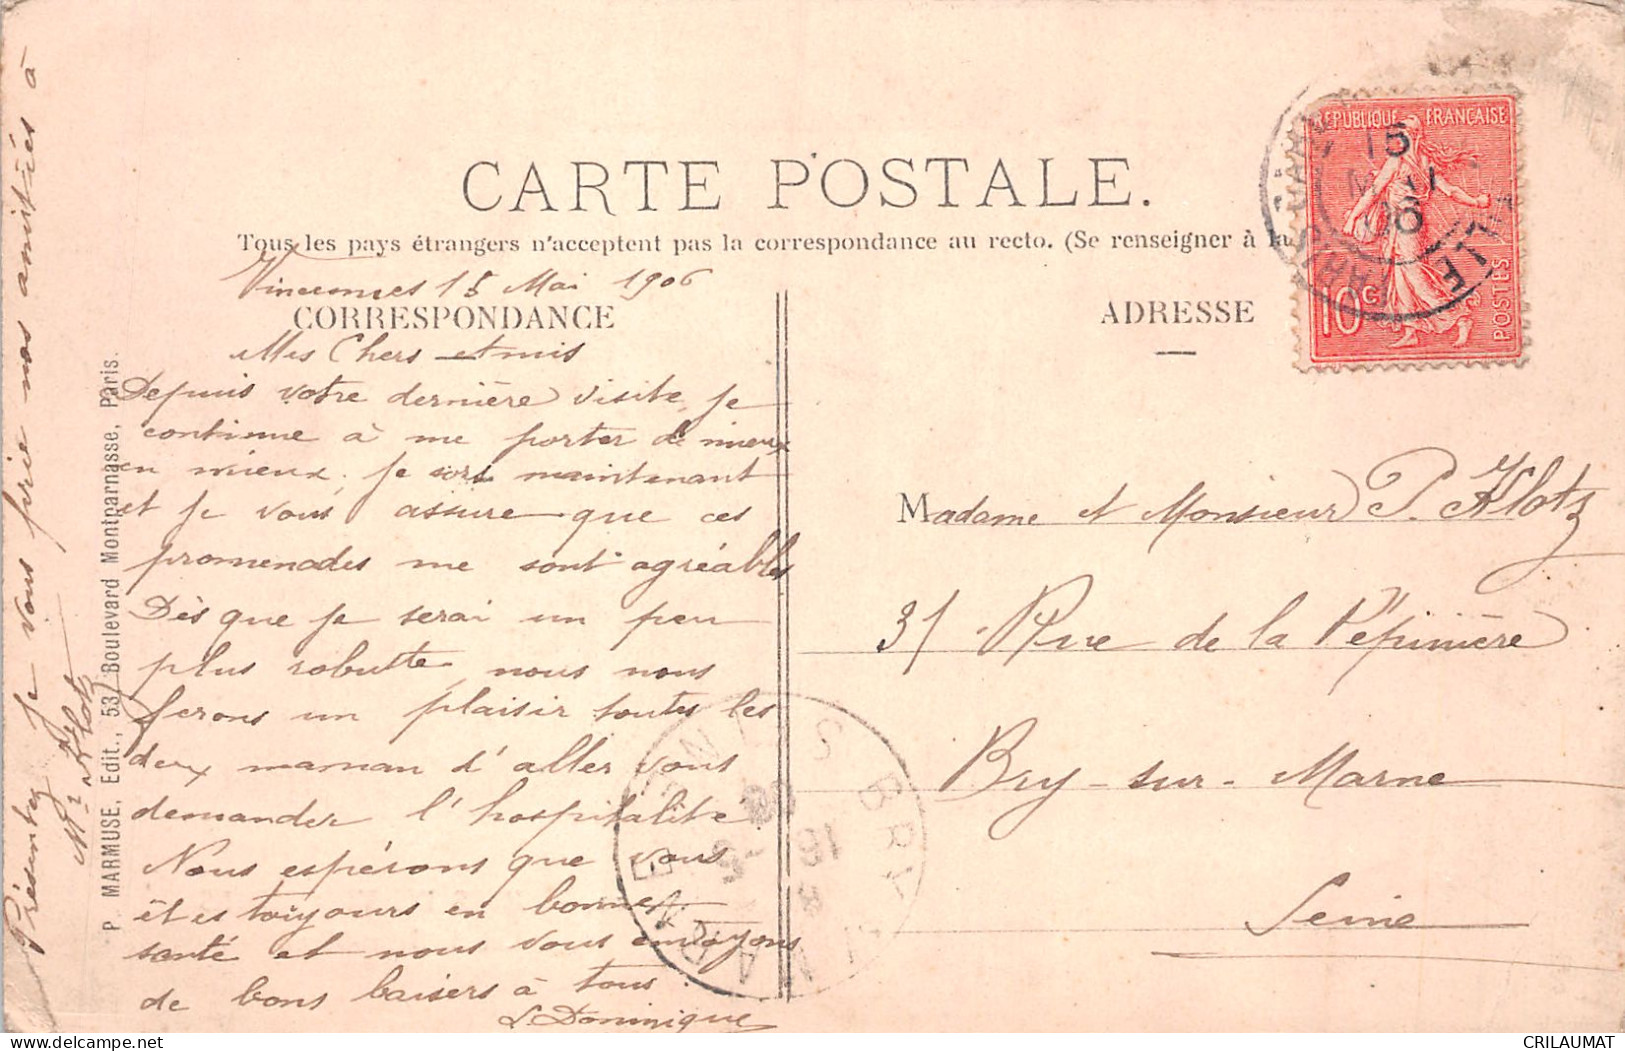 CARTE POSTALE.
Tous les pays étrangers n'acceptent pas la correspondance au recto. (Se renseigner à la
Vincennes 15 Mai 1906
CORRESPONDANCE
Mes Chers Amis
Depuis votre dernière visite, je
continue à me porter de mieux
en mieux. je sors maintenant
et je vous assure que ces
promenades me sont agréables
Dès que je serai un peu
plus robuste, nous nous
ferons un plaisir toutes les
deux maman d'aller vous
demander l'hospitalité.
Nous espérons que vous
êtes toujours en bonne
santé et nous vous envoyons
de bons baisers à tous
L. Dominique
Présentez je vous prie nos amitiés à
Mr Klotz
P. MARMUSE, Edit., 53, Boulevard Montparnasse, Paris.
ADRESSE
Madame et Monsieur P. Klotz
31 Rue de la Pépinière
Bry-sur-Marne
Seine
REPUBLIQUE FRANÇAISE
10 c
POSTES
15
MAI
06
BRY S MARNE
SEINE
16
CRILAUMAT